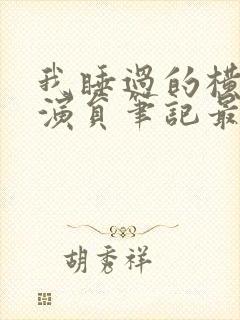 我睡過的橫
演員筆記最
胡秀祥